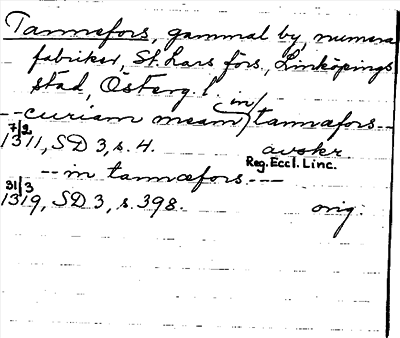 Tannefors, gammal by, numera
fabriker, St. Lars förs., Linköpings
stad, Österg. l.
-- curiam meam (in) tannæfors --
7/2
1311, SD 3, s. 4. avskr.
Reg. Eccl. Linc.
-- in tannæfors. ---
31/3
1319, SD 3, s. 398. orig.